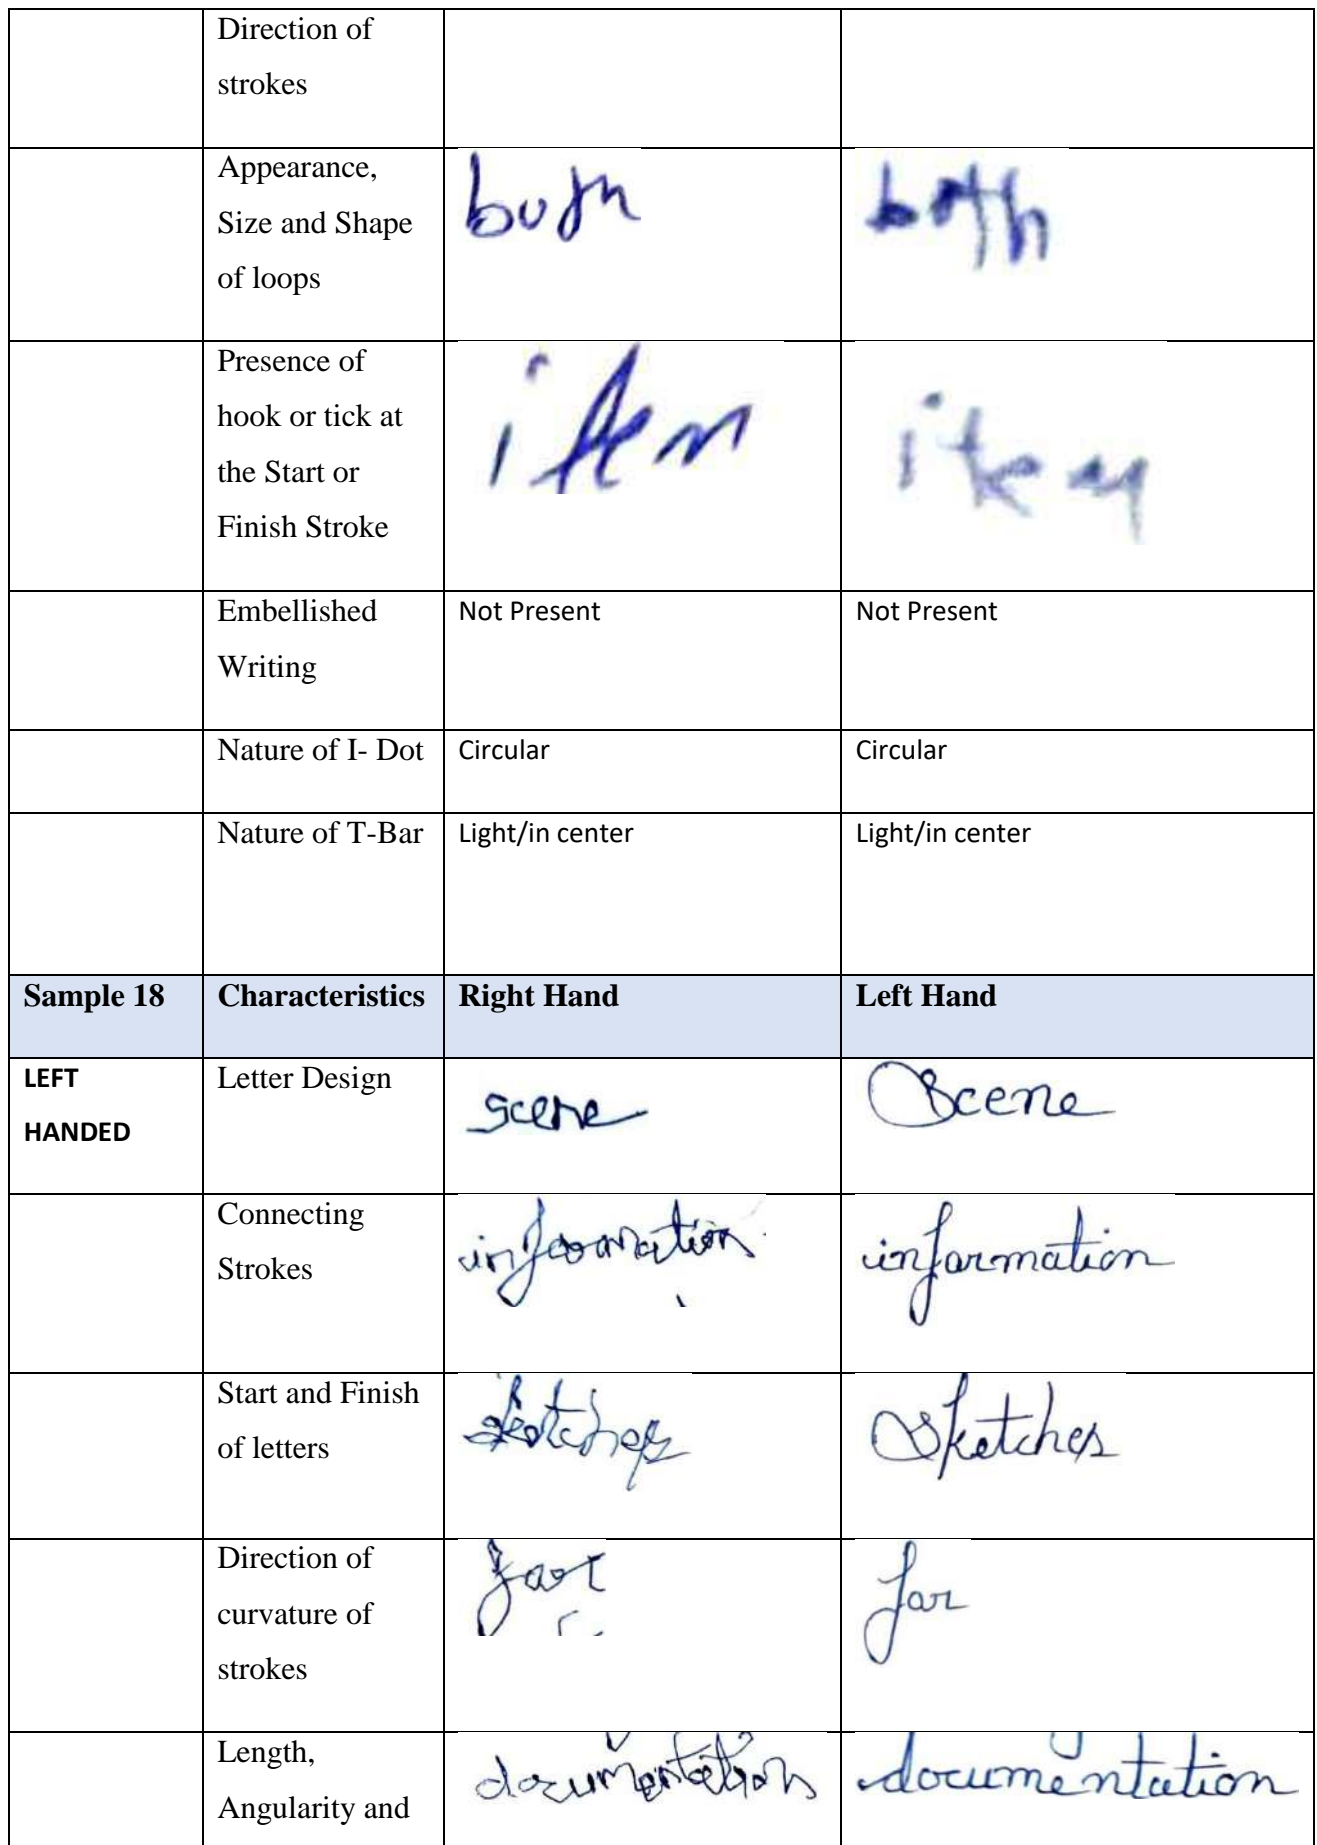 Direction of
strokes
Appearance,
Size and Shape
of loops
both
both
Presence of
hook or tick at
the Start or
Finish Stroke
item
item
Embellished
Writing
Not Present
Not Present
Nature of I- Dot
Circular
Circular
Nature of T-Bar
Light/in center
Light/in center
Sample 18
Characteristics
Right Hand
Left Hand
LEFT
HANDED
Letter Design
scene
Scene
Connecting
Strokes
information
information
Start and Finish
of letters
sketches
Sketches
Direction of
curvature of
strokes
far
far
Length,
Angularity and
documentation
documentation